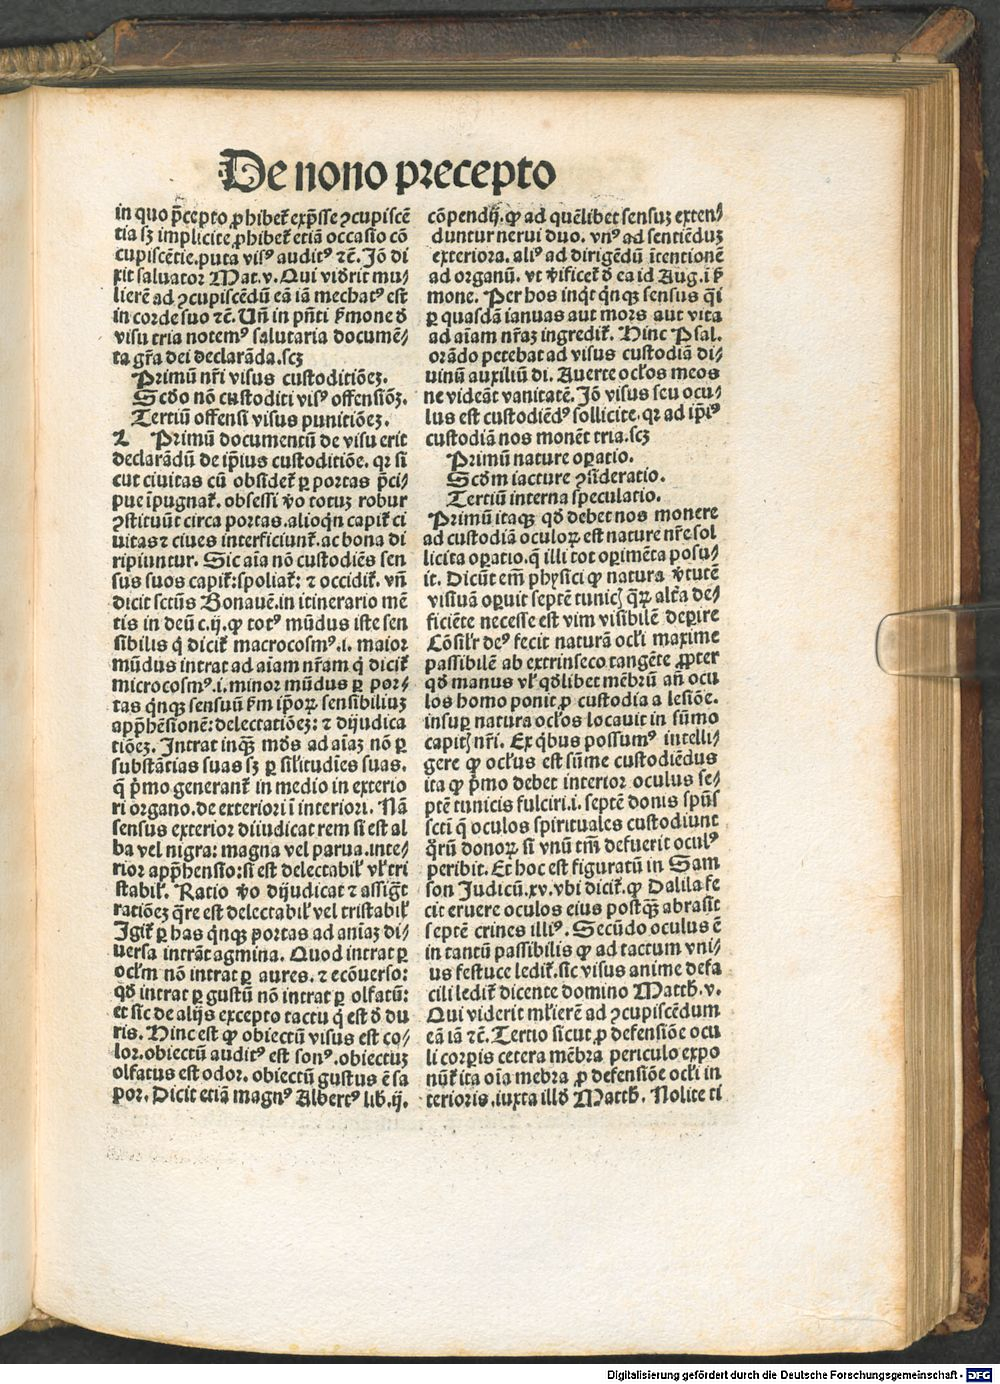 De nono precepto
in quo p̄cepto ꝓhibet᷑ exp̄sse ꝯcupiscē
tia sꝫ implicite ꝓhibet᷑ etiā occasio cō
cupiscētie. puta visꝰ auditꝰ ⁊c̄. Jō di
xit saluator Mat. v. Qui viđrit mu⸗
lierē ad ꝯcupiscēdū eā iā mechatꝰ est
in corde suo ⁊c̄. Uñ in p̄nti ẜmone đ
visu tria notemꝰ salutaria documē⸗
ta gr̄a dei declarāda. scꝫ
Primū nr̄i visus custoditiōeꝫ.
Scđo nō custoditi visꝰ offensiōꝫ.
Tertiū offensi visus punitiōeꝫ.
Primū documentū de visu erit
declarādū de ip̄ius custoditiōe. qꝛ si
cut ciuitas cū obsidet᷑ ꝑ portas p̄ci⸗
pue īpugnat᷑. obsessi ꝟo totuꝫ robur
ꝯstituūt circa portas. alioqͥn capit᷑ ci
uitas ⁊ ciues interficiunt᷑. ac bona di
ripiuntur. Sic aīa nō custodiēs sen
sus suos capit᷑: spoliat᷑: ⁊ occidit᷑. vñ
dicit sctūs Bonauē. in itinerario mē
tis in deū c. ij. ꝙ totꝰ mūdus iste sen
sibilis q̇ dicit᷑ macrocosmꝰ .i. maior
mūdus intrat ad aīam nr̄am q̇ dicit᷑
microcosmꝰ .i. minor mūdus ꝑ por⸗
tas qͥnqꝫ sensuū ẜm ip̄oꝝ sensibiliuꝫ
app̄hēsionē: delectatiōeꝫ: ⁊ dijudica
tiōeꝫ. Intrat inqͣꝫ mđs ad aīaꝫ nō ꝑ
substātias suas sꝫ ꝑ sil̄itudīes suas.
q̄ pͥmo generant᷑ in medio in exterio
ri organo. de exteriori ī interiori. Nā
sensus exterior diiudicat rem si est al
ba vel nigra: magna vel parua. inte⸗
rior app̄hensio: si est delectabil᷑ vl᷑ tri
stabil᷑. Ratio ꝟo dijudicat ⁊ assigͣt
ratiōeꝫ qͣre est delectabil᷑ vel tristabil᷑
Igit᷑ ꝑ has qͥnqꝫ portas ad aīaꝫ di⸗
uersa intrāt agmina. Quod intrat ꝑ
ocl᷑m nō intrat ꝑ aures. ⁊ ecōuerso:
qđ intrat ꝑ gustū nō intrat ꝑ olfatū:
et sic de alijs excepto tactu q̇ est đ du
ris. Hinc est ꝙ obiectū visus est co⸗
lor. obiectū auditꝰ est sonꝰ. obiectuꝫ
olfatus est odor. obiectū gustus ē sa
por. Dicit etiā magnꝰ Albertꝰ lib. ij.
cōpendij. ꝙ ad quēlibet sensuꝫ exten⸗
duntur nerui duo. vnꝰ ad sentiēduꝫ
exteriora. aliꝰ ad dirigēdū ītentionē
ad organū. vt ꝟificet᷑ đ ea id Aug. ī ẜ
mone. Per hos inqͥt qͥnqꝫ sensus qͣi
ꝑ quasdā ianuas aut mors aut vita
ad aīam nr̄aꝫ ingredit᷑. Hinc Psal.
orādo petebat ad visus custodiā di⸗
uinū auxiliū di. Auerte ocl᷑os meos
ne videāt vanitatē. Jō visus seu ocu⸗
lus est custodiēdꝰ sollicite. qꝛ ad ip̄iꝰ
custodiā nos monēt tria. scꝫ
Primū nature oꝑatio.
Scđm iacture ꝯsideratio.
Tertiū interna speculatio.
Primū itaqꝫ qđ debet nos monere
ad custodiā oculoꝝ est nature nr̄e sol
licita oꝑatio. q̄ illi tot oꝑimēta posu⸗
it. Dicūt em̄ physici ꝙ natura ꝟtutē
visiuā oꝑuit septē tunicꝭ qͣꝝ alt̄a de⸗
ficiēte necesse est vim visibilē deꝑire
Cōsil᷑r deꝰ fecit naturā ocl᷑i maxime
passibilē ab extrinseco tangēte ꝓpter
qđ manus vl᷑ qđlibet mēbrū añ ocu
los homo ponit ꝓ custodia a lesiōe.
insuꝑ natura ocl᷑os locauit in sūmo
capitꝭ nr̄i. Ex qͥbus possumꝰ intelli⸗
gere ꝙ ocl᷑us est sūme custodiēdus
ita ꝙ pͥmo debet interior oculus se⸗
ptē tunicis fulciri .i. septē donis sp̄ūs
scti q̄ oculos spirituales custodiunt
qͣrū donoꝝ si vnū tm̄ defuerit oculꝰ
peribit. Et hoc est figuratū in Sam
son Judicū. xv. vbi dicit᷑. ꝙ Dalila fe
cit eruere oculos eius postqͣꝫ abrasit
septē crines illiꝰ. Secūdo oculus ē
in tantū passibilis ꝙ ad tactum vni⸗
us festuce ledit᷑. sic visus anime defa
cili ledit᷑ dicente domino Matth. v.
Qui viderit ml᷑ierē ad ꝯcupiscēdum
eā iā ⁊c̄. Tertio sicut ꝓ defensiōe ocu
li corꝑis cetera mēbra periculo expo
nūt᷑ ita oīa mebra ꝓ defensiōe ocl᷑i in
terioris. iuxta illđ Matth. Nolite ti
Digitalisierung gefördert durch die Deutsche Forschungsgemeinschaft - DFG